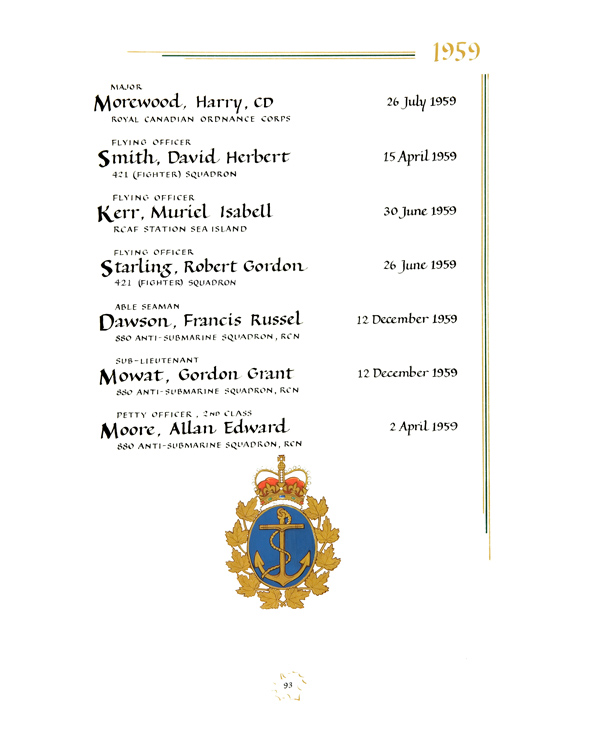 1959
MAJOR
Morewood, Harry, CD 26 July 1959
ROYAL CANADIAN ORDNANCE CORPS
FLYING OFFICER
Smith, David Herbert 15 April 1959
421 (FIGHTER) SQUADRON
FLYING OFFICER
Kerr, Muriel Isabell 30 June 1959
RCAF STATION SEA ISLAND
FLYING OFFICER
Starling, Robert Gordon 26 June 1959
421 (FIGHTER) SQUADRON
ABLE SEAMAN
Dawson, Francis Russel 12 December 1959
880 ANTI-SUBMARINE SQUADRON, RCN
SUB-LIEUTENANT
Mowat, Gordon Grant 12 December 1959
880 ANTI-SUBMARINE SQUADRON, RCN
PETTY OFFICER, 2ND CLASS
Moore, Allan Edward 2 April 1959
880 ANTI-SUBMARINE SQUADRON, RCN
93